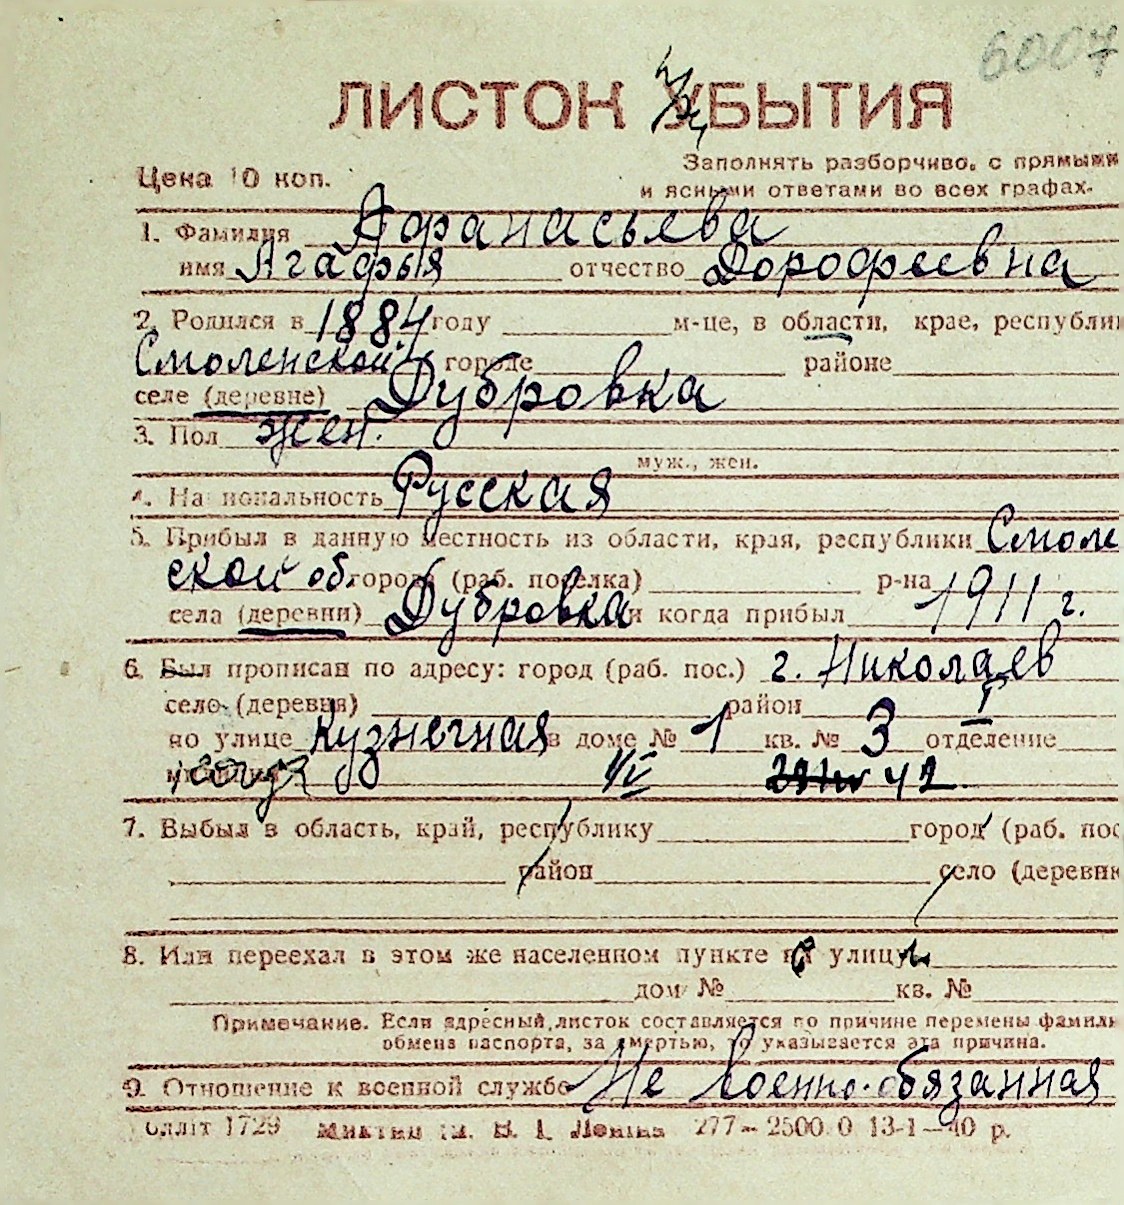 6007
ЛИСТОК УБЫТИЯ
Цена 10 коп.
Заполнять разборчиво, с прямыми
и ясными ответами во всех графах.
1. Фамилия Афанасьева
имя Агафья отчество Дорофеевна
2. Родился в 1884 году м-це, в области, крае, республи
Смоленской городе районе
селе (деревне) Дубровка
3. Пол жен.
муж., жен.
4. Национальность Русская
5. Прибыл в данную местность из области, края, республики Смол
ской об. города (раб. поселка) р-на
села (деревни) Дубровка и когда прибыл 1911 г.
6. Был прописан по адресу: город (раб. пос.) г. Николаев
село (деревня) район I
по улице Кузнечная в доме № 1 кв. № 3 отделение
IV 42
7. Выбыл в область, край, республику город (раб. пос
район село (деревню
8. Или переехал в этом же населенном пункте улицу
дом № кв. №
Примечание. Если адресный листок составляется по причине перемены фамили
обмена паспорта, за смертью, то указывается эта причина.
9. Отношение к военной службе Не военно-обязанная
1729 277 – 2500.0 13-1–40 р.